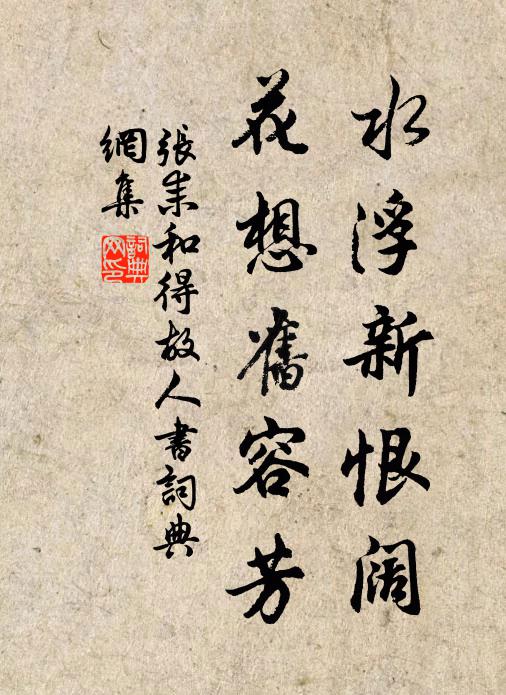 水浮新恨阔
花想舊容芳
張耒和得故人書詞典
網集
詞典
网印